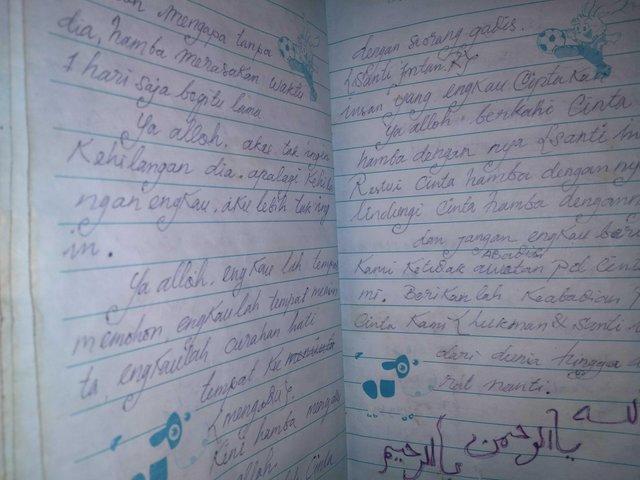 mengapa tanpa
dia, hamba merasakan waktu
1 hari saja begitu lama
Ya alloh. aku tak ingin
Kehilangan dia. apalagi Kehila
ngan engkau. aku lebih tak ing
in.
Ya alloh. engkau lah tempat
memohon, engkaulah tempat memin
ta, engkaulah curahan hati
tempat Ku
{mengadu}.
Kini hamba mengadu
alloh
Cinta
dengan seorang gadis.
{Santi Intan. R}
insan yang engkau Ciptakan
Ya alloh. berkahi Cinta
hamba dengan nya {Santi In
Restui Cinta hamba dengan ny
lindungi Cinta hamba dengann
dan jangan engkau beri
Abadian
Kami Ketidak awatan pd Cinta
mi. Berikan lah Keabadian
Cinta Kami {Lukman & Santi
dari dunia hingga
rat nanti.
الله
يا الرحمن
يا الرحيم